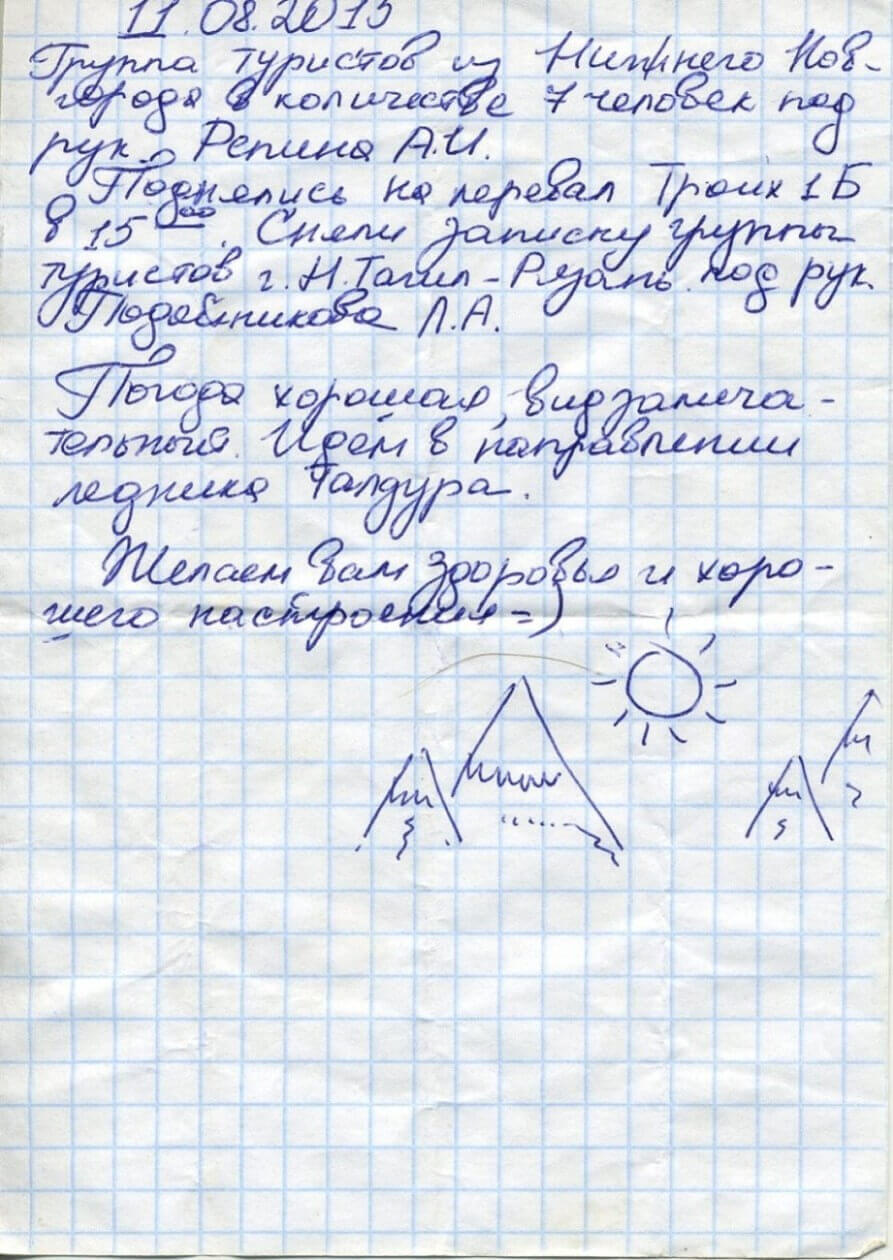 11.08.2015
Группа туристов из Нижнего Нов-
города в количестве 7 человек под
рук. Репина А.И.
Поднялись на перевал Троих 1Б
в 15⁰⁰. Сняли записку группы
туристов г. Н.Тагил-Рязань под рук.
Л.А.
Погода хорошая, вид замеча-
тельный. Идём в направлении
ледника Талдура.
Желаем вам здоровья и хоро-
шего настроения =)